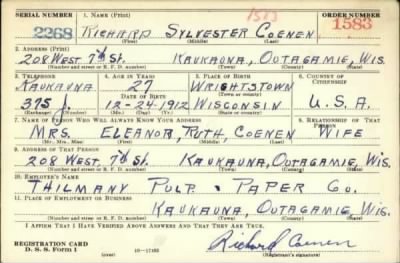 1513
SERIAL NUMBER 1. Name (Print) ORDER NUMBER
2268 RICHARD SYLVESTER COENEN 1583
(First) (Middle) (Last)
2. Address (Print)
208 WEST 7th St. KAUKAUNA, OUTAGAMIE, WIS.
(Number and street or R. F. D. number) (Town) (County) (State)
3. Telephone 4. Age in Years 5. Place of Birth 6. Country of Citizenship
KAUKAUNA 27 WRIGHTSTOWN
Date of Birth (Town or county)
375 J. 12-24-1912 WISCONSIN U.S.A.
(Exchange) (Number) (Mo.) (Day) (Yr.) (State or country)
7. Name of Person Who Will Always Know Your Address 8. Relationship of That Person
MRS. ELEANOR, RUTH, COENEN WIFE
(Mr., Mrs., Miss) (First) (Middle) (Last)
9. Address of That Person
208 WEST. 7th St. KAUKAUNA, OUTAGAMIE, Wis.
(Number and street or R. F. D. number) (Town) (County) (State)
10. Employer's Name
THILMANY PULP & PAPER Co.
11. Place of Employment or Business
KAUKAUNA, OUTAGAMIE, WIS.
(Number and street or R. F. D. number) (Town) (County) (State)
I Affirm That I Have Verified Above Answers and That They Are True.
REGISTRATION CARD
D. S. S. Form 1 (over) 16—17105 Richard Coenen
(Registrant's signature)